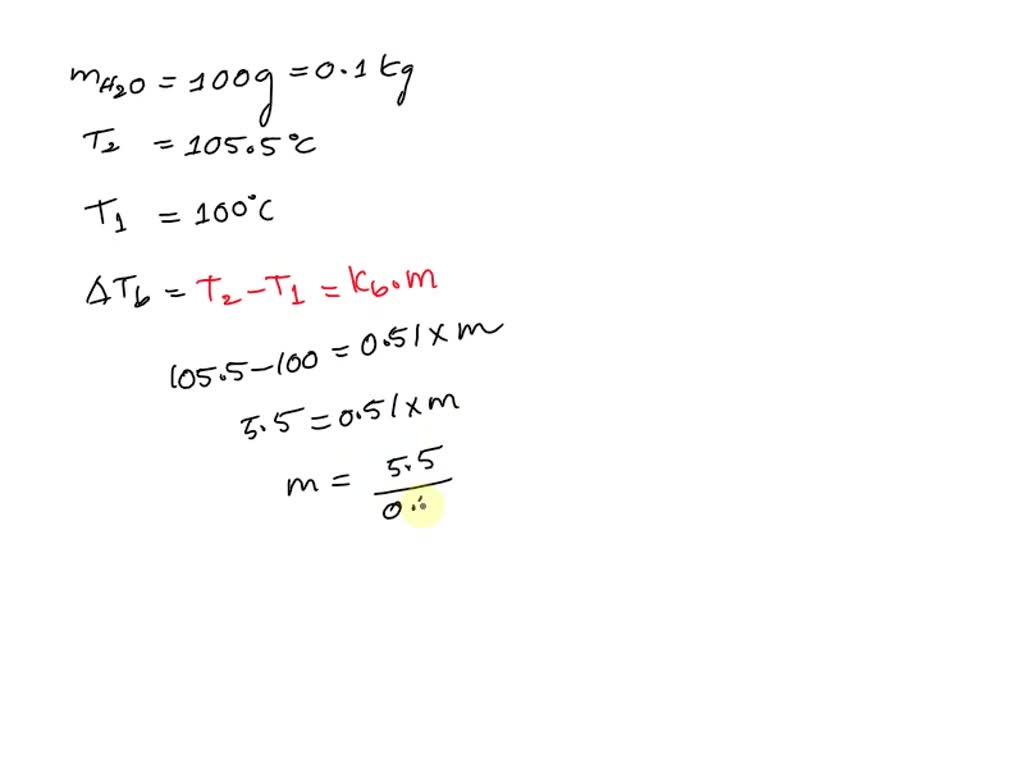 mH2O = 100g = 0.1 kg
T2 = 105.5°C
T1 = 100°C
ΔTb = T2 - T1 = Kb.m
105.5 - 100 = 0.51 x m
5.5 = 0.51 x m
m = 5.5
0.